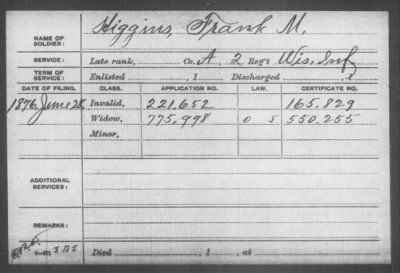 NAME OF SOLDIER: Higgins, Frank M.
SERVICE: Late rank, Co. A, 2 Reg't Wis. Inf
TERM OF SERVICE: Enlisted , 1 Discharged , 1
DATE OF FILING. CLASS. APPLICATION NO. LAW. CERTIFICATE NO.
1876 June 28, Invalid, 221.652 165.829
Widow, 775.998 O 5 550.255
Minor,
ADDITIONAL SERVICES:
REMARKS:
Died , 1 , at